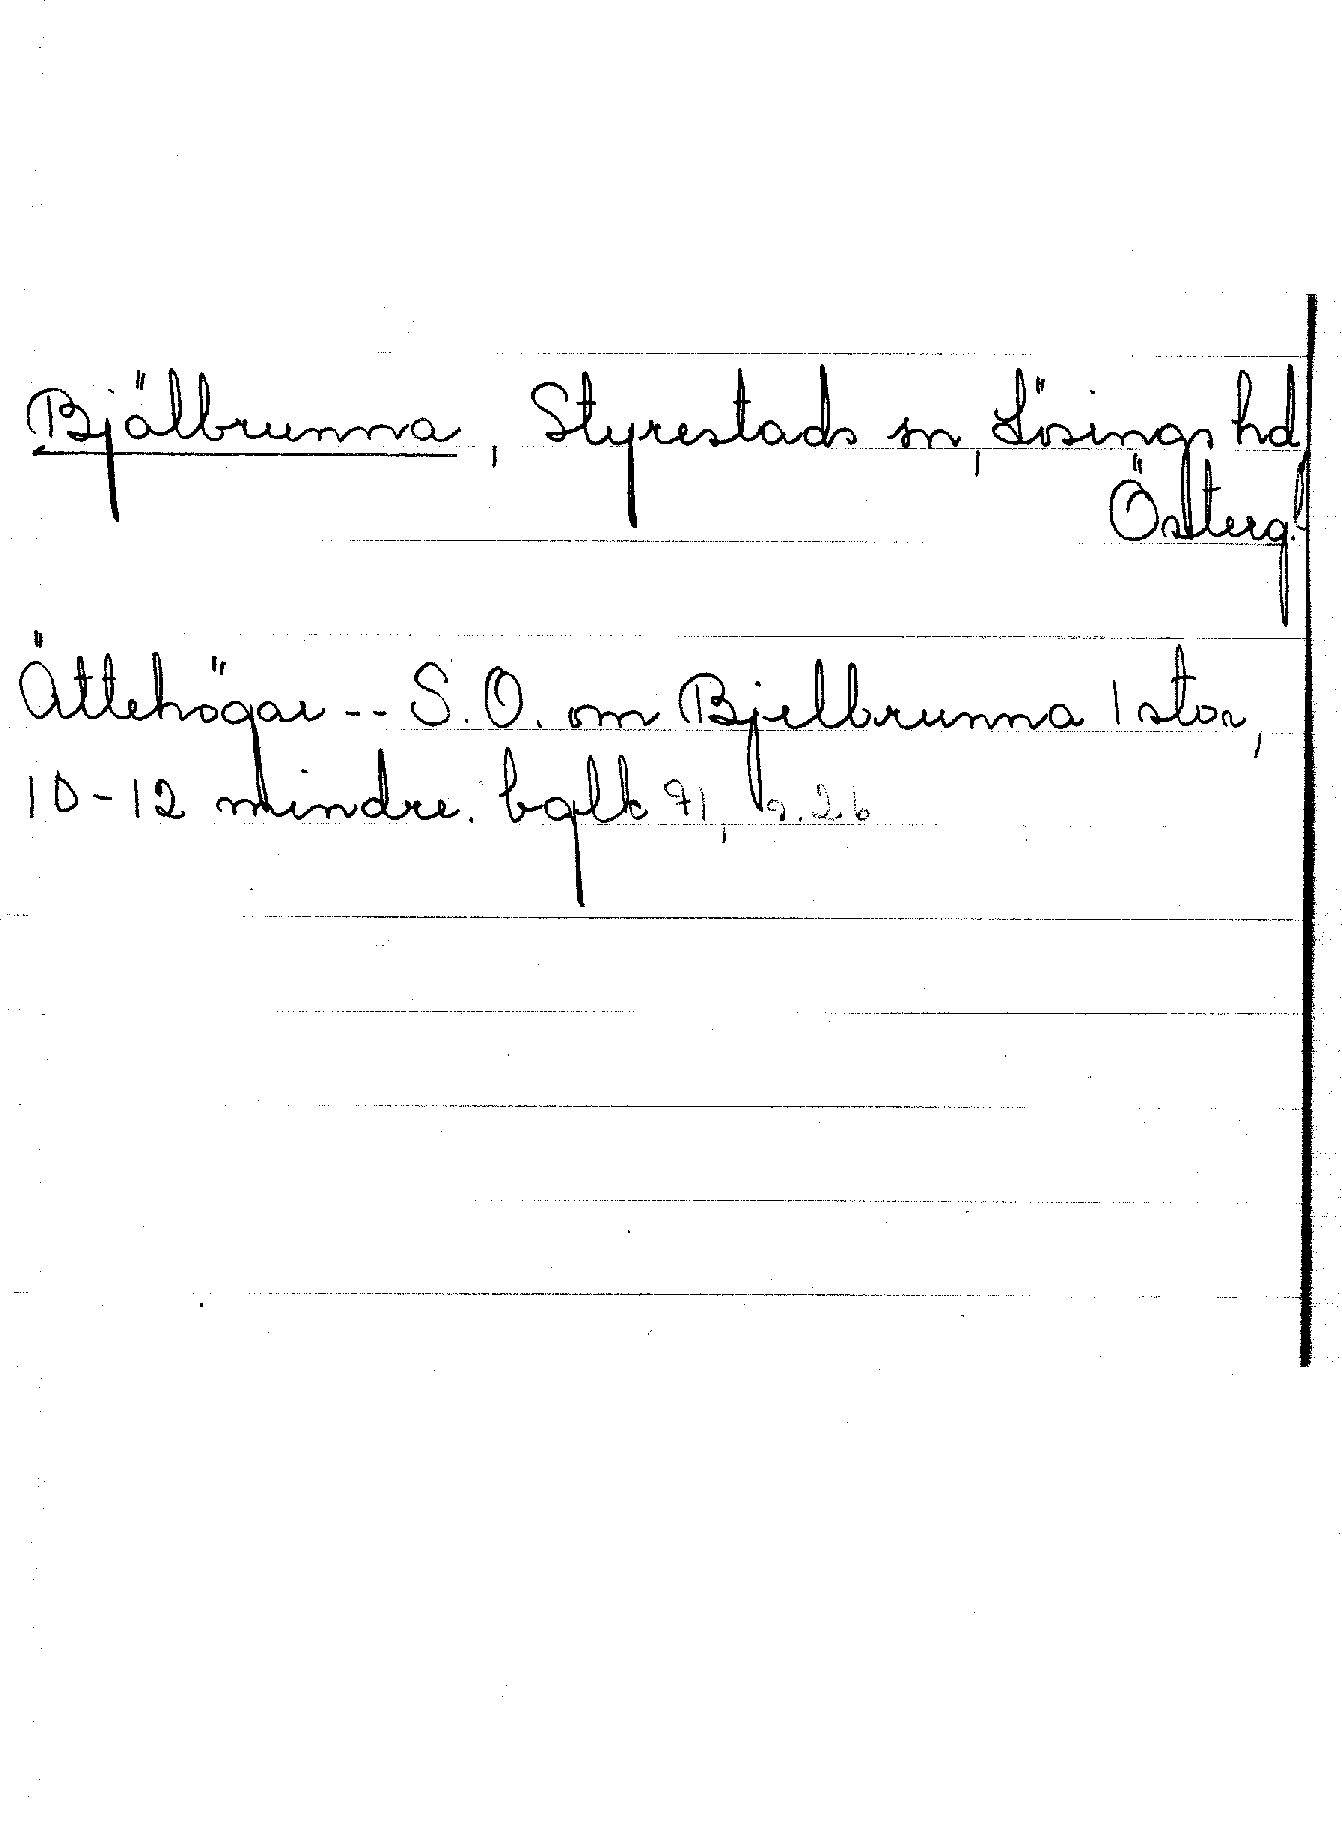 Bjälbrunna, Styrestads sn, Lösings hd,
Österg.
Ättehögar -- S.O. om Bjelbrunna 1 stor,
10-12 mindre. bglk 71, s. 26